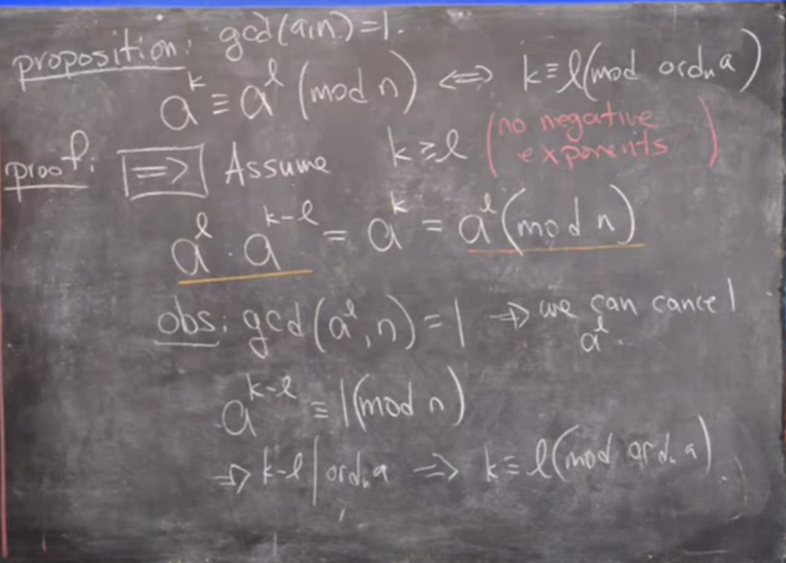 proposition: gcd(a,n)=1.
a^k ≡ a^l (mod n) ⇔ k≡l(mod ord_n a)
proof: ⇒ Assume k≥l (no negative exponents)
a^l · a^(k-l) = a^k = a^l (mod n)
obs: gcd(a^l, n) = 1 ⇒ we can cancel
a^l.
a^(k-l) ≡ 1(mod n)
⇒ k-l | ord_n a ⇒ k≡l(mod ord_n a).